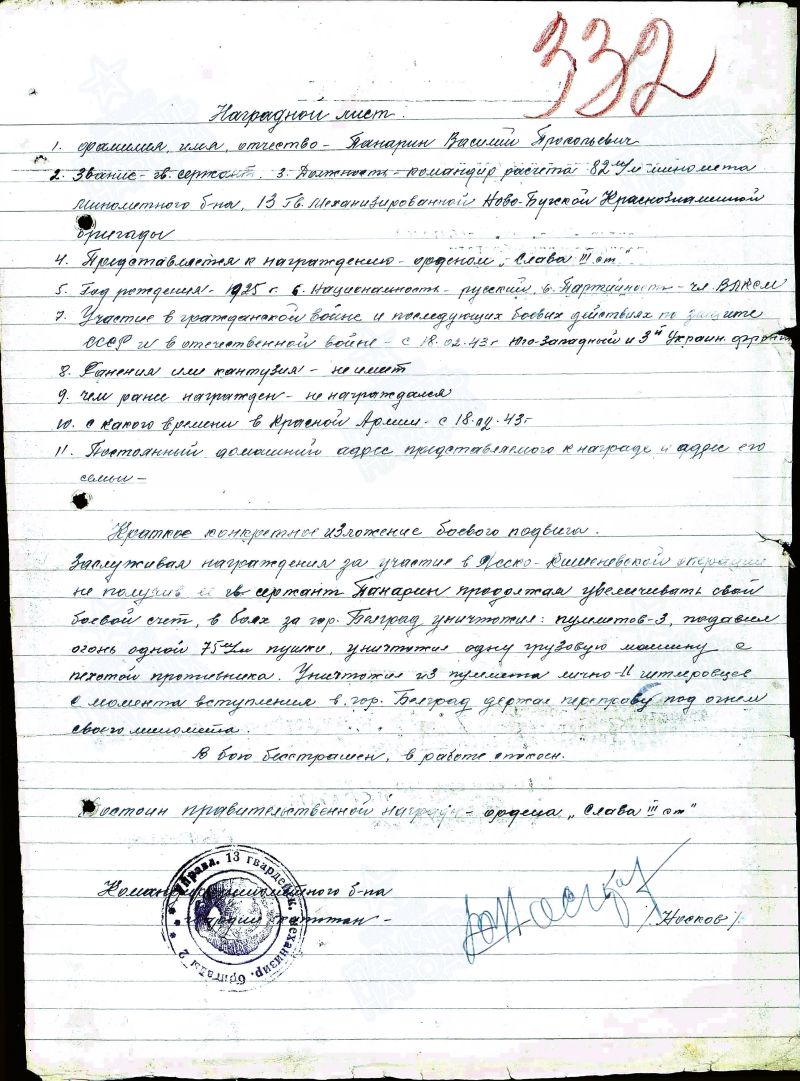 332
Наградной лист.
1. фамилия, имя, отчество - Панарин Василий Прокопьевич
2. Звание - гв. сержант. 3. Должность - командир расчета 82 м/м миномета
минометного б-на, 13 Гв. Механизированной Ново-Бугской Краснознаменной
бригады
4. Представляется к награждению - орденом „Слава III ст"
5. Год рождения - 1925 г. 6. Национальность - русский, в. Партийность - чл. ВЛКСМ
7. Участие в гражданской войне и последующих боевых действиях по защите
СССР и в отечественной войне - с 18.02.43 г Юго-Западный и 3й Украин. фронт
8. Ранения или кантузия - не имеет
9. чем ранее награжден - не награждался
10. с какого времени в Красной Армии - с 18.02.43 г
11. Постоянный домашний адрес представляемого к награде и адрес его
семьи -
Краткое конкретное изложение боевого подвига.
Заслуживая награждения за участие в Ясско-Кишеневской операции
не получив её гв сержант Панарин продолжая увеличивать свой
боевой счет, в боях за гор. Белград уничтожил: пулеметов-3, подавил
огонь одной 75 м/м пушки, уничтожил одну грузовую машину с
пехотой противника. Уничтожил из пулемета лично-11 гитлеровцев
с момента вступления в гор. Белград держал переправу под огнем
своего миномета.
В бою бесстрашен, в работе спокоен.
Достоин правительственной награды - ордена „Слава III ст"
Управл. 13 гвардейск. механизир. бригады 2
Командир минометного б-на
гвардии капитан - / Носков /.